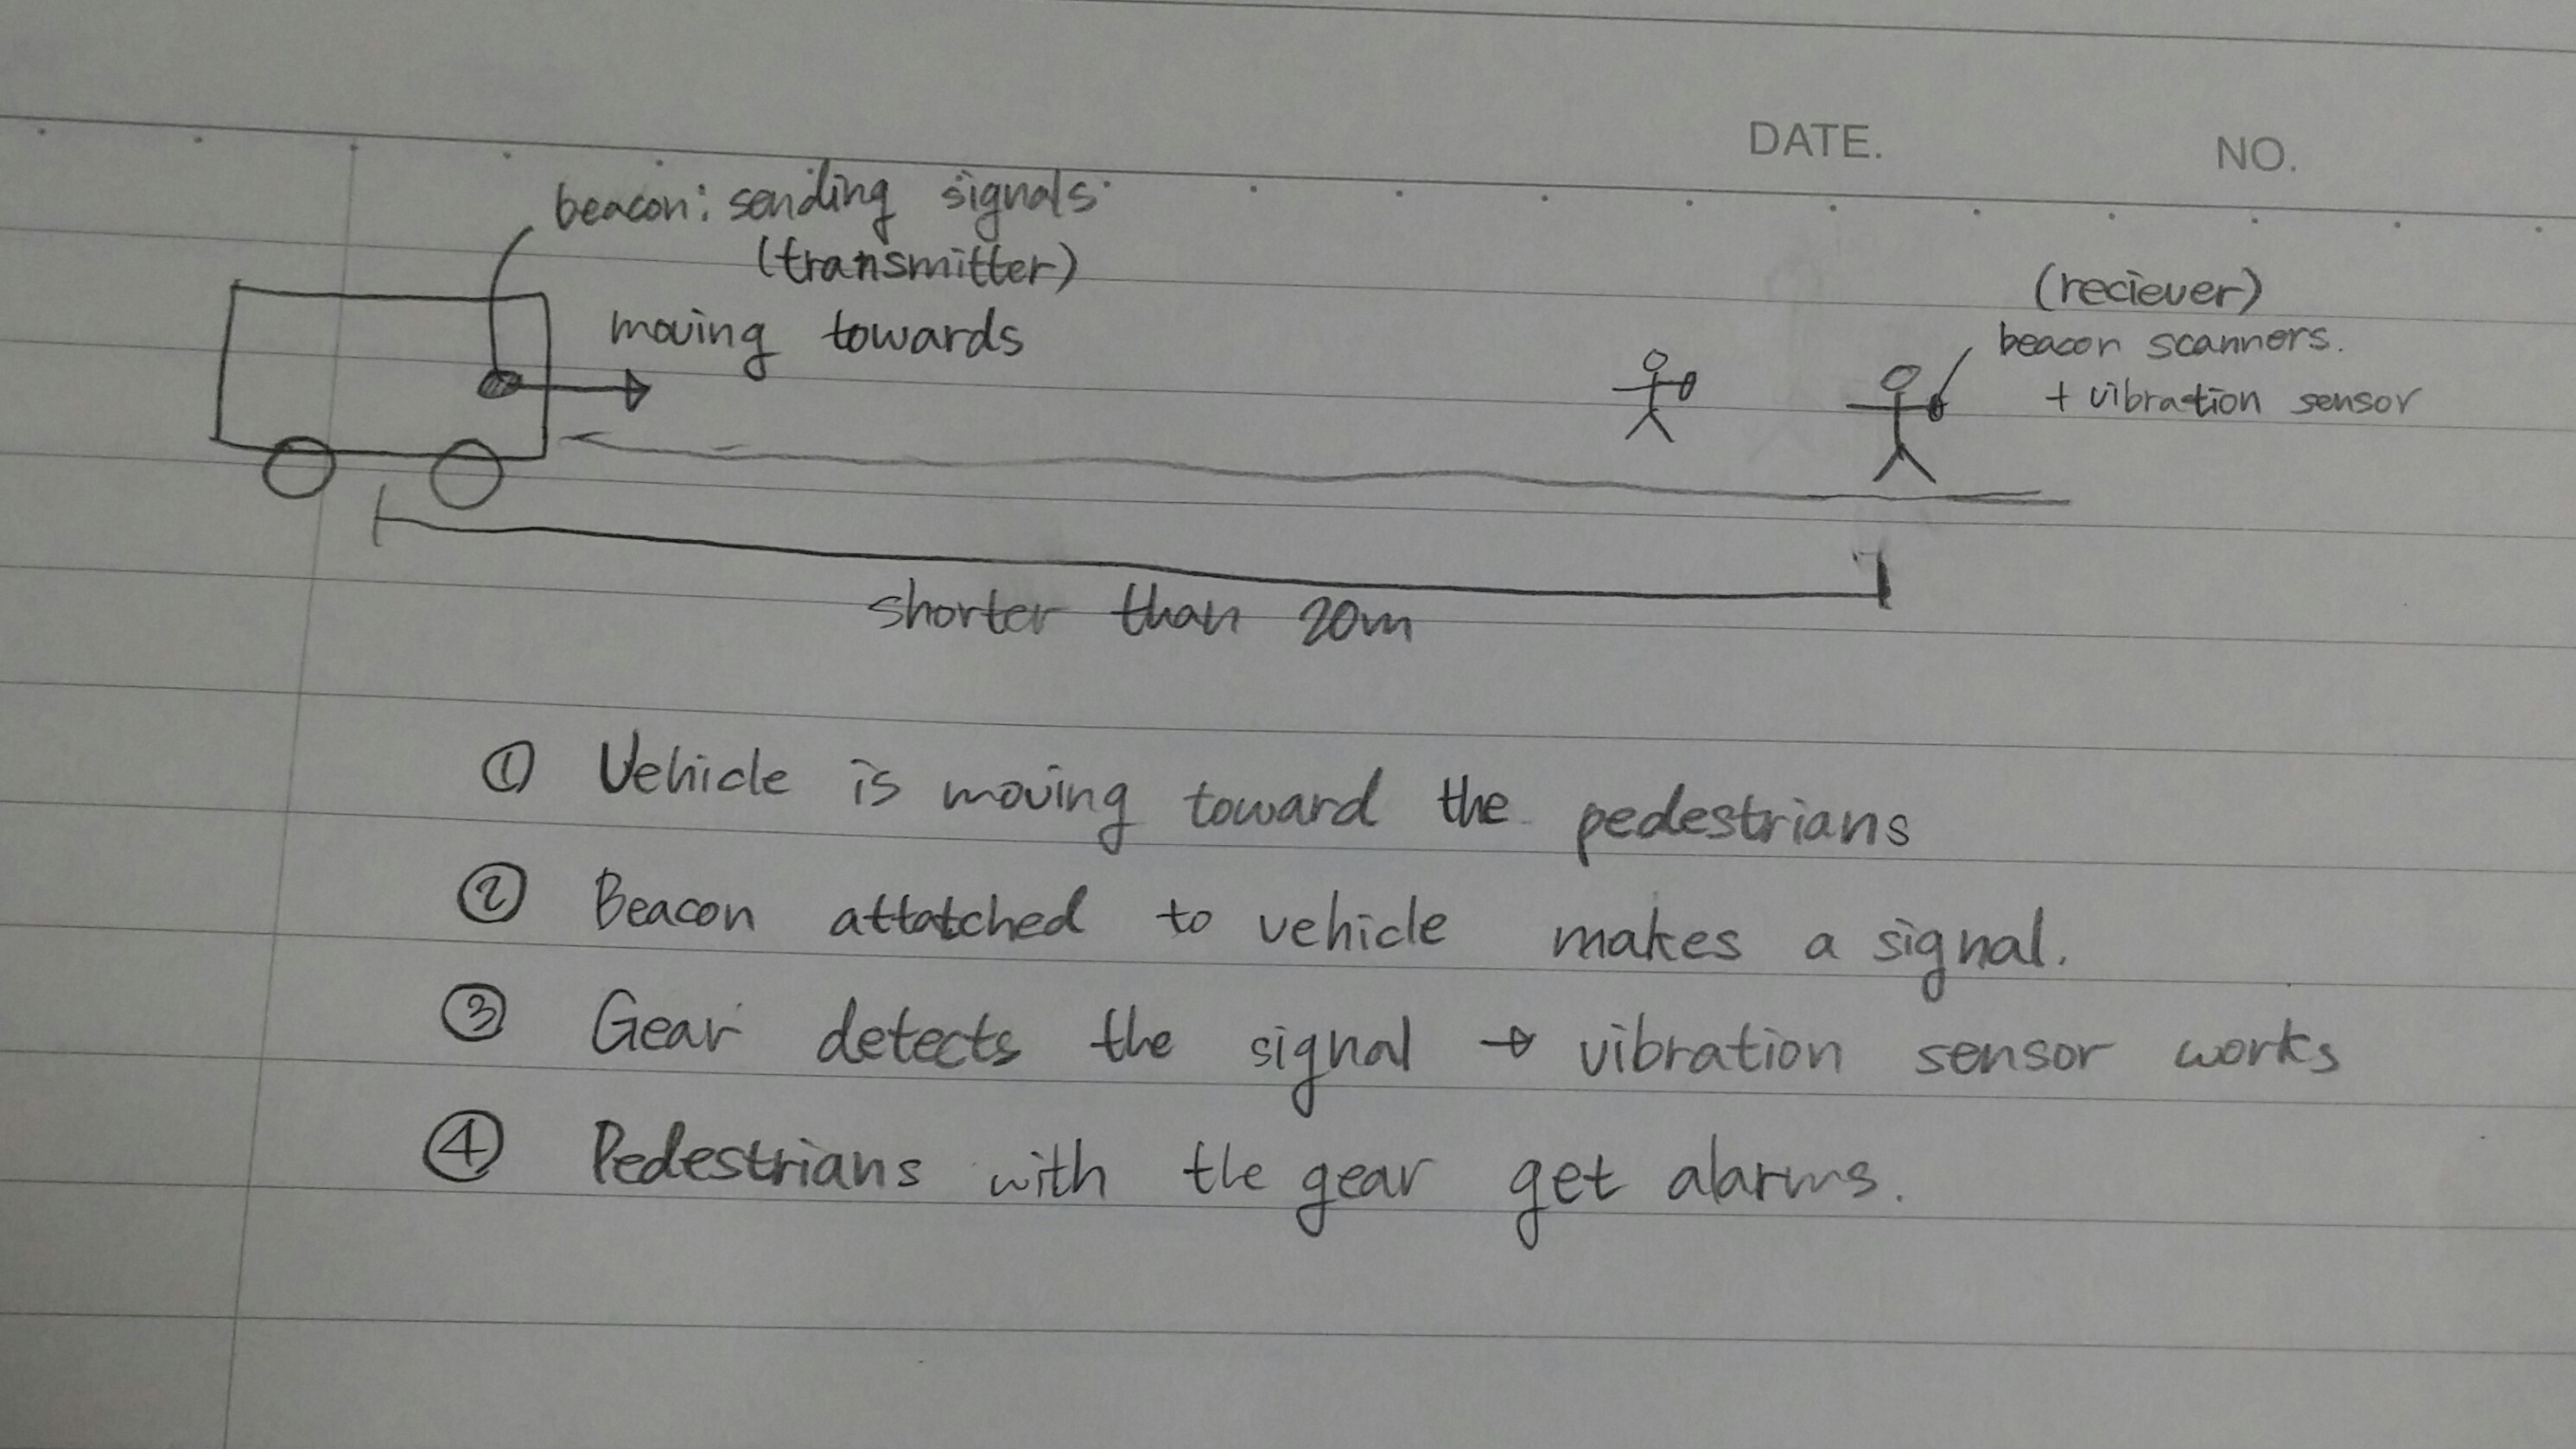 DATE. NO.
beacon: sending signals
(transmitter)
moving towards
(reciever)
beacon scanners.
+ vibration sensor
shorter than 20m
① Vehicle is moving toward the pedestrians
② Beacon attatched to vehicle makes a signal.
③ Gear detects the signal → vibration sensor works
④ Pedestrians with the gear get alarms.